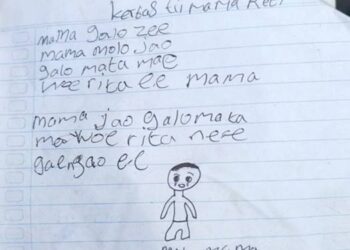 kertas tii mama Reti
mama galo zee
mama molo jao
galo mata mae
woe rita ee mama
mama jao galo mata
ma woe rita nere
gaengao ee